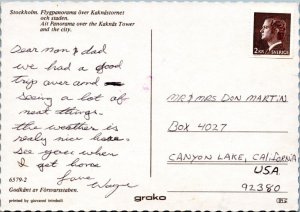 Stockholm. Flygpanorama över Kaknästornet
och staden.
Air Panorama over the Kaknäs Tower
and the city.
Dear mom & dad
we had a good
trip over and
seeing a lot of
neat things.
the weather is
really nice here.
see you when
I get home
Love
Wayne
6579-2
Godkänt av Försvarsstaben.
printed by giovanni trimboli
grako
2 KR
SVERIGE
MR & MRS DON MARTIN
BOX 4027
CANYON LAKE, CALIFORNIA
USA
92380